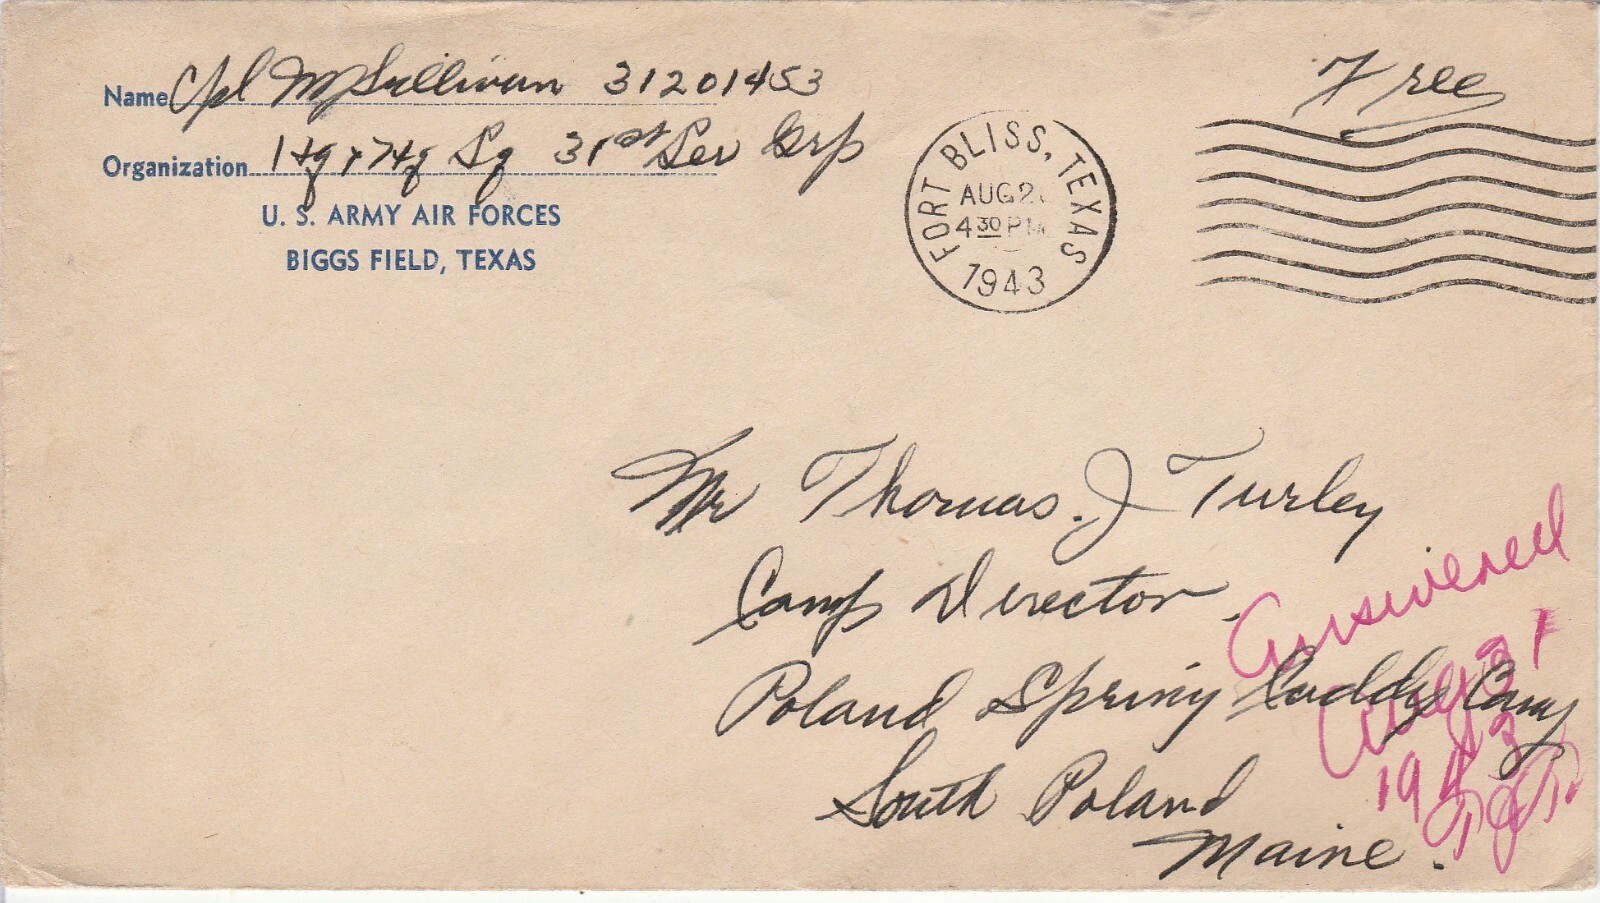 Name Cpl M Sullivan 31201453
Organization Hq & Hq Sq 31st Ser Grp
U. S. ARMY AIR FORCES
BIGGS FIELD, TEXAS
Free
FORT BLISS, TEXAS
AUG 2
4 30 PM
1943
Mr Thomas. J Turley
Camp Director
Poland Spring Caddy Camp
South Poland
Maine.
Answered
Aug 31
1943
TJT